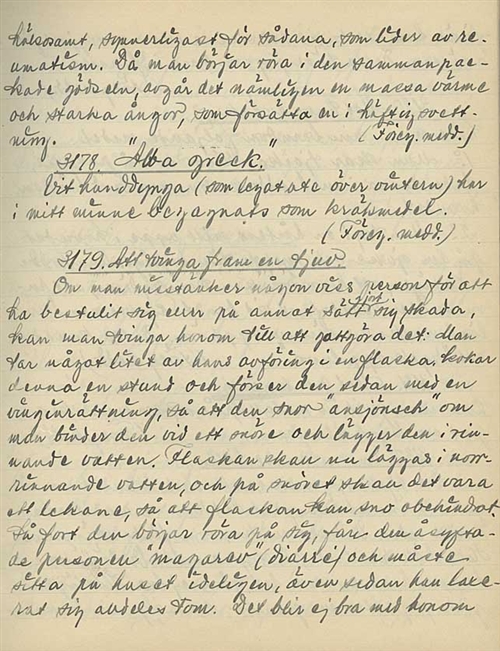 hälsosamt, synnerligast för sådana, som lider av re-
umatism. Då man börjar röra i den samman pac-
kade gödseln, avgår det nämligen en massa värme
och starka ångor, som försätta en i häftig svett-
ning. (Föreg. medd.)
3178. "Alba greek."
Vit hunddynga (som legat ute över vintern) har
i mitt minne begagnats som kräkmedel.
(Föreg. medd.)
3179. Att tvinga fram en tjuv.
Om man misstänker någon viss person för att
ha bestulit sig eller på annat sätt gjort sig skada,
kan man tvinga honom till att gottgöra det: Man
tar något litet av hans avföring i en flaska, kokar
denna en stund och förser den sedan med en
vinginrättning, så att den snor "ansjönsch" om
man binder den vid ett snöre och lägger den i rin-
nande vatten. Flaskan skall nu läggas i norr-
rinnande vatten, och på snöret skall det vara
ett lekane, så att flaskan kan sno obehindrat.
Så fort den börjar röra på sig, får den åsyfta-
de personen "magarev" (diarré) och måste
sitta på huset ideligen, även sedan han laxe-
rat sig alldeles tom. Det blir ej bra med honom